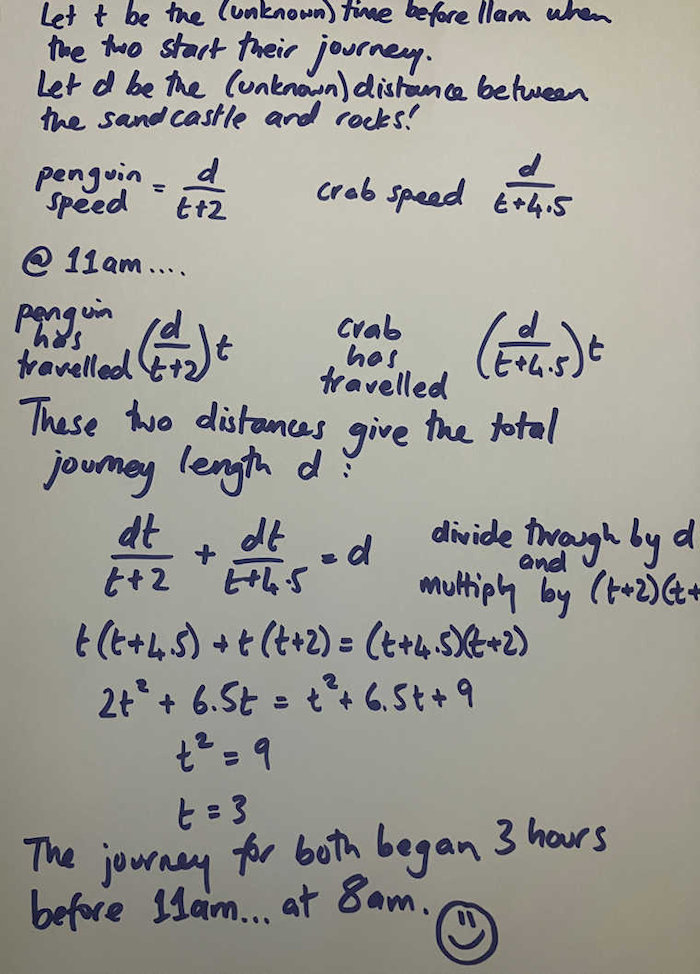 Let t be the (unknown) time before 11am when
the two start their journey.
Let d be the (unknown) distance between
the sandcastle and rocks!
penguin speed = d/(t+2)    crab speed d/(t+4.5)
@ 11am....
penguin has travelled (d/(t+2))t    crab has travelled (d/(t+4.5))t
These two distances give the total
journey length d :
dt/(t+2) + dt/(t+4.5) = d    divide through by d and multiply by (t+2)(t+
t(t+4.5) + t(t+2) = (t+4.5)(t+2)
2t² + 6.5t = t² + 6.5t + 9
t² = 9
t = 3
The journey for both began 3 hours
before 11am... at 8am.